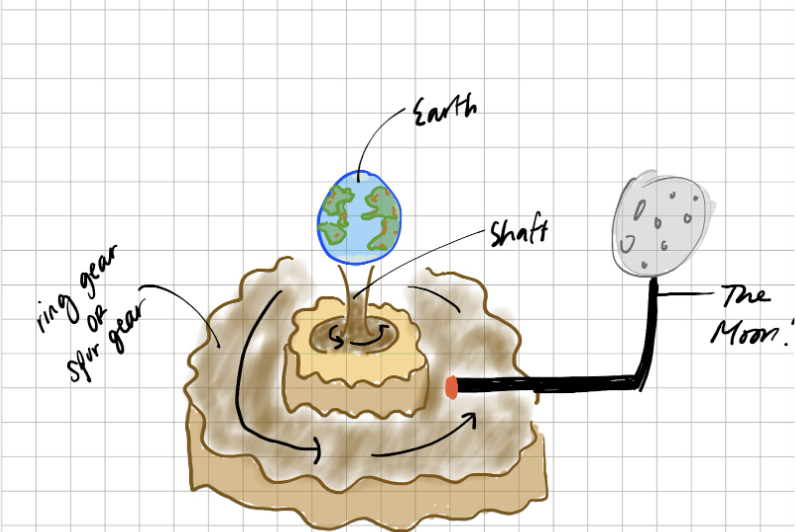 Earth
shaft
ring gear
OR
spur gear
The
Moon!